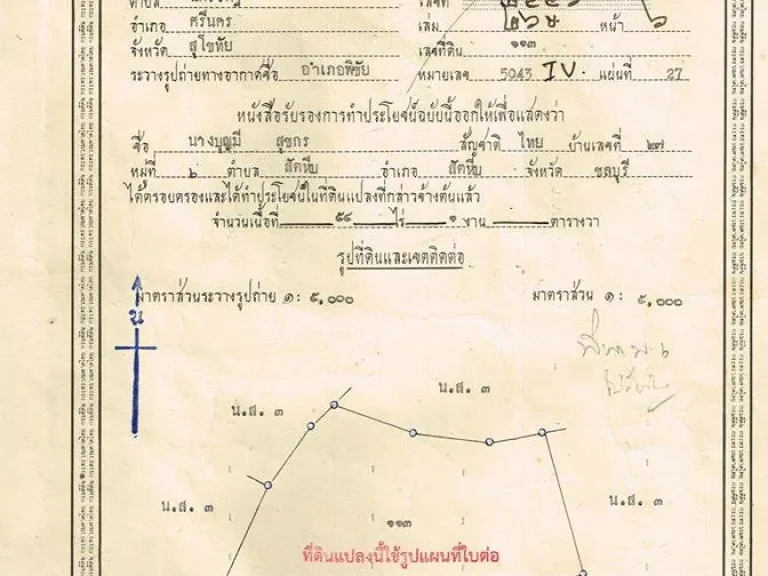 ตำบล
อำเภอ ศรีนคร เล่ม ๒๖ษ หน้า ๖
จังหวัด สุโขทัย เลขที่ดิน ๑๑๓
ระวางรูปถ่ายทางอากาศชื่อ อำเภอพิชัย หมายเลข 5043 IV. แผ่นที่ 27
หนังสือรับรองการทำประโยชน์ฉบับนี้ออกให้เพื่อแสดงว่า
ชื่อ นางบุญมี สุขกร สัญชาติ ไทย บ้านเลขที่ ๒๗
หมู่ที่ ๖ ตำบล สัตหีบ อำเภอ สัตหีบ จังหวัด ชลบุรี
ได้ครอบครองและได้ทำประโยชน์ในที่ดินแปลงที่กล่าวข้างต้นแล้ว
จำนวนเนื้อที่ ๕๔ ไร่ ๑ งาน ตารางวา
รูปที่ดินและเขตติดต่อ
มาตราส่วนระวางรูปถ่าย ๑: ๕,๐๐๐ มาตราส่วน ๑: ๕,๐๐๐
น
น.ส. ๓
น.ส. ๓
น.ส. ๓
น.ส. ๓
๑๑๓
ที่ดินแปลงนี้ใช้รูปแผนที่ใบต่อ